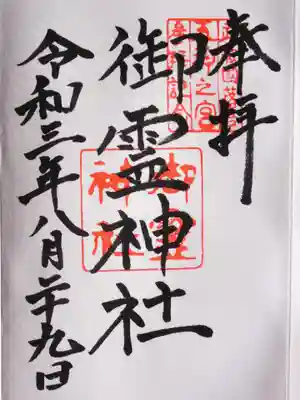 奉拝
御霊神社
令和三年八月二十九日
御霊
神社